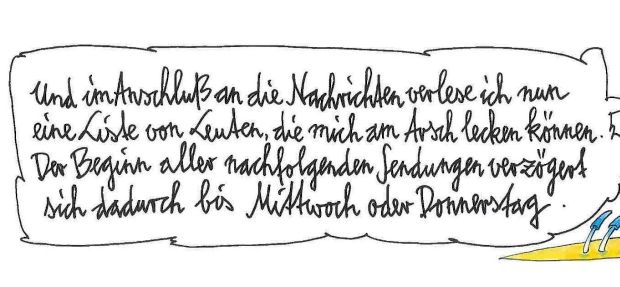 Und im Anschluß an die Nachrichten verlese ich nun
eine Liste von Leuten, die mich am Arsch lecken können.
Der Beginn aller nachfolgenden Sendungen verzögert
sich dadurch bis Mittwoch oder Donnerstag.